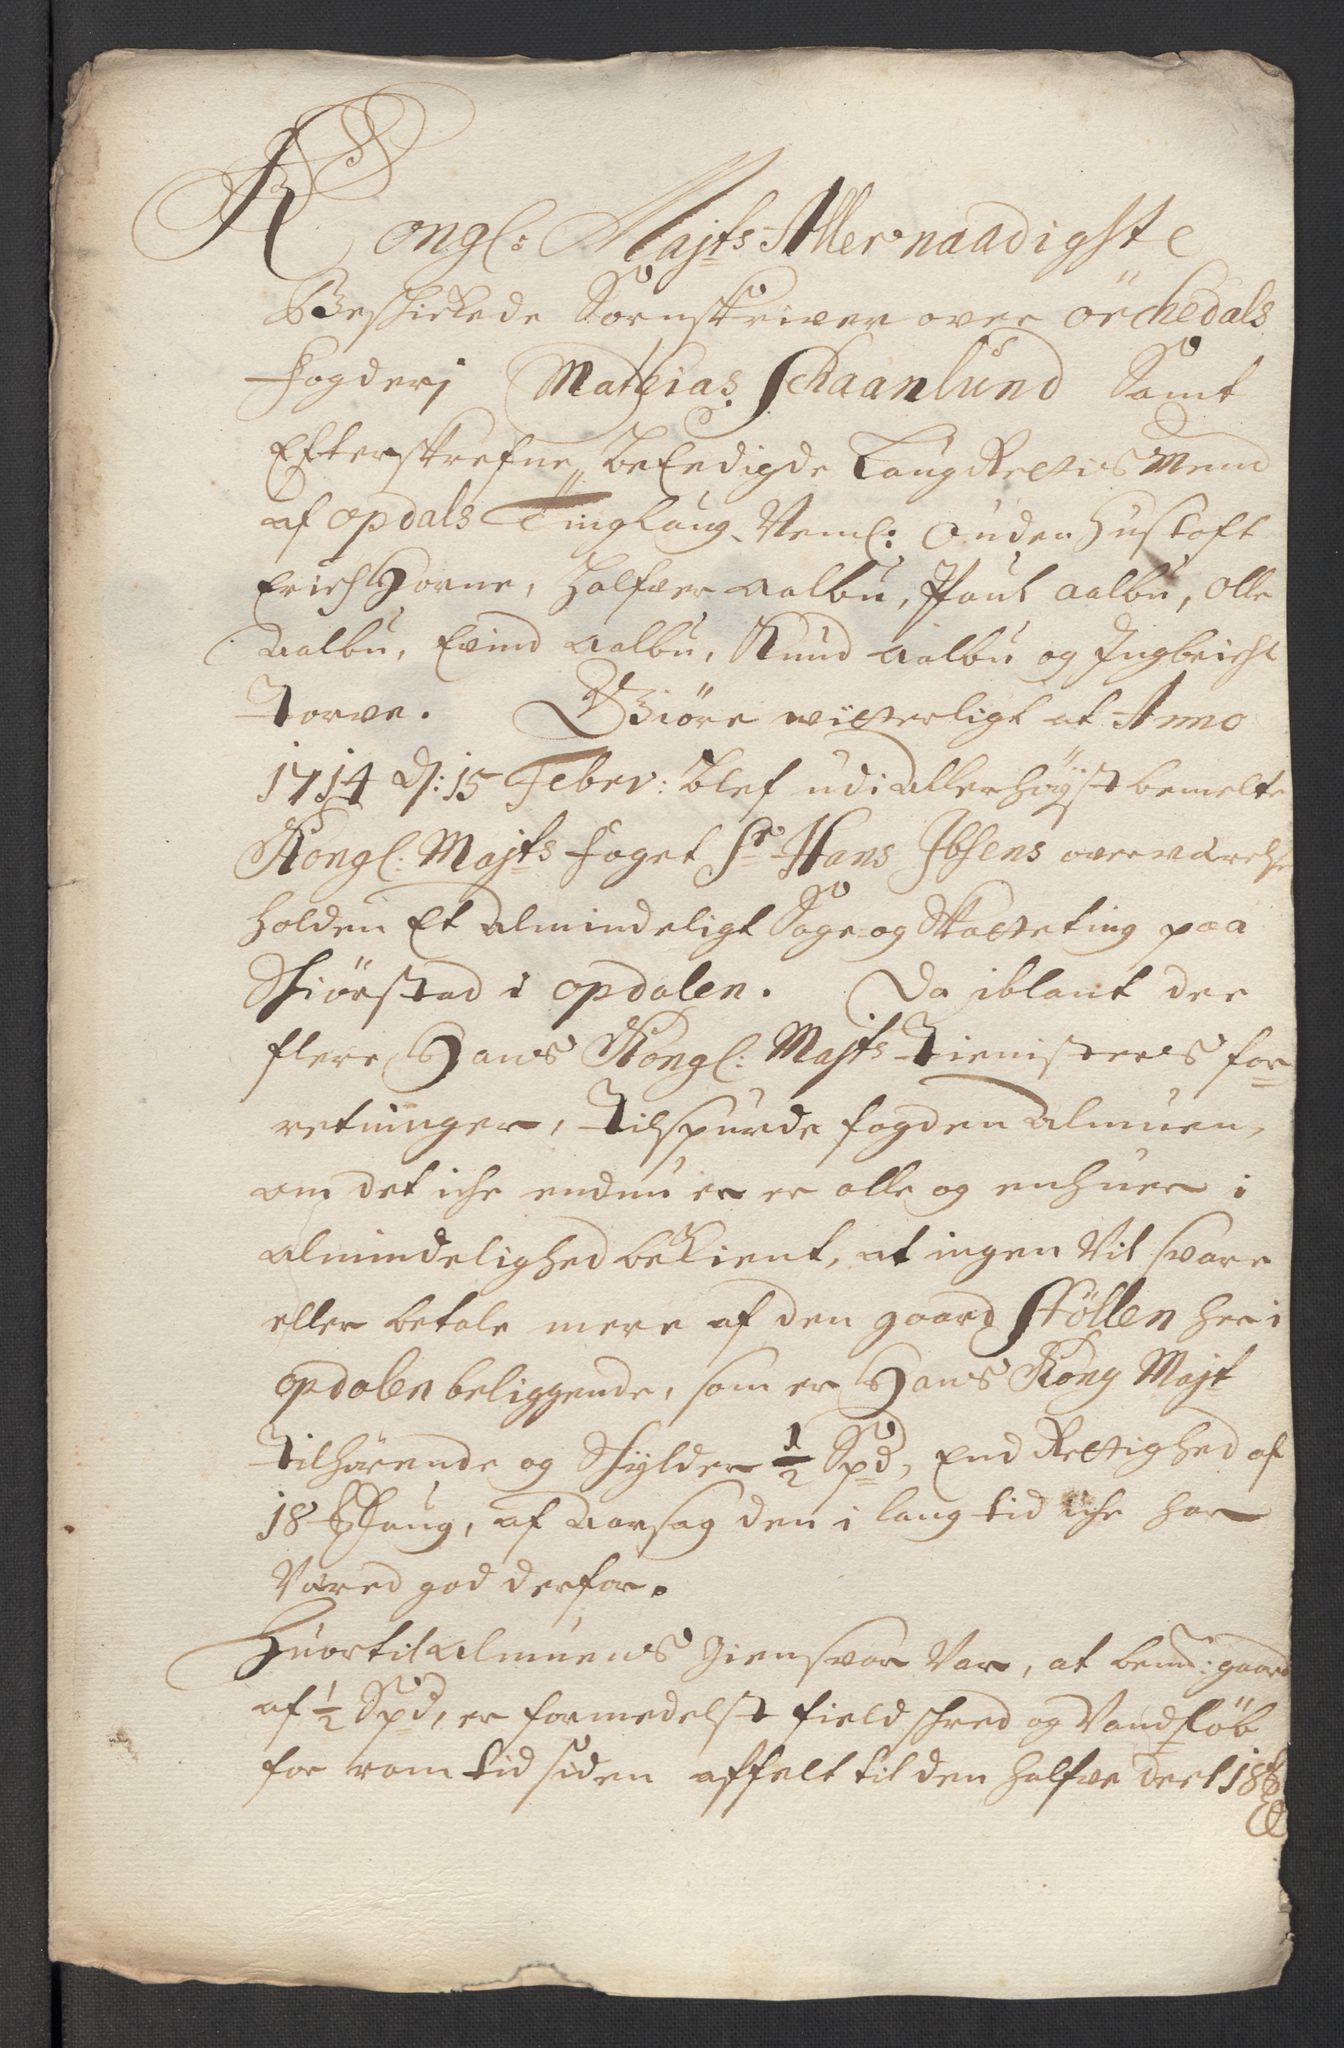 Kongl: Majts Allernaadigste
Beskickede Sornskriver over örchedals
Fogderj Mathias Schaanlund Samt
Efterskrefne beEedigde LaugRettisMend
af opdals Tinglaug Neml: Ouden Hustoft
Erich Horne, Halfver Aalbu, Paul Aalbu, Olle
Aalbu, Evind Aalbu, Knud Aalbu og Ingbricht
Torve. Giöre witterligt at Anno
1714 d: 15 Febr: blef udi Allerhöyst bemelte
Kongl: Majts Foget Sr Hans Ibsens overværelse
holden Et Almindeligt Sage og Skatteting paa
Skiörstad i opdalen. Da iblant der
flere Hans Kongl: Majts Tienisteres for
retninger, Tilspurde fogden Almuen,
om det iche endnu er er alle og enhuer i
Almindelighed bekient, at ingen Vil svare
eller betale mere af den gaard Stöllen her i
opdalen beliggende, som er Hans Kong Majt
Tilhörende og Skylder 1/2 Spd, End Rettighed af
18 Marg, af Aarsag den i lang tid iche har
Væred god derfor.
Huortil Almuens Giensvar Var, at bemte: gaard
af 1/2 Spd, er formedelst field skred og Vandflöb
for rom tid siden affelt til den halfve deel 18